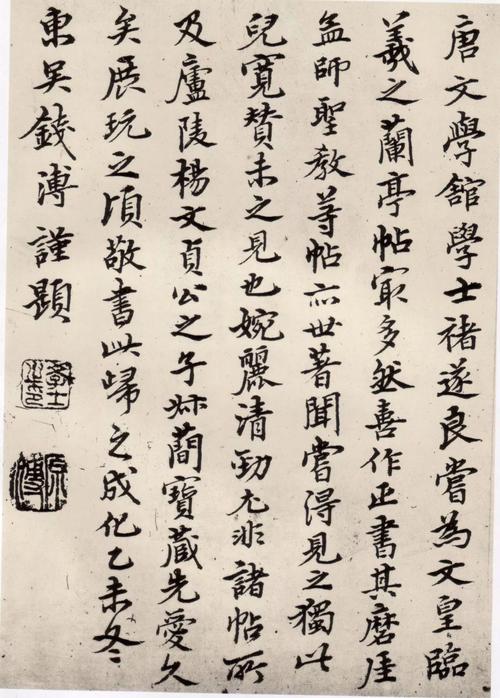 唐文學舘學士褚遂良嘗為文皇臨
羲之蘭亭帖㝡多然喜作正書其磨厓
孟師聖教等帖亦世著聞嘗得見之獨此
兒寬贊未之見也婉麗清勁尤非諸帖所
及廬陵楊文貞公之子叔蕳寶藏先愛久
矣展玩之頃敬書此歸之成化乙未冬
東吳錢溥謹題
學士
原溥